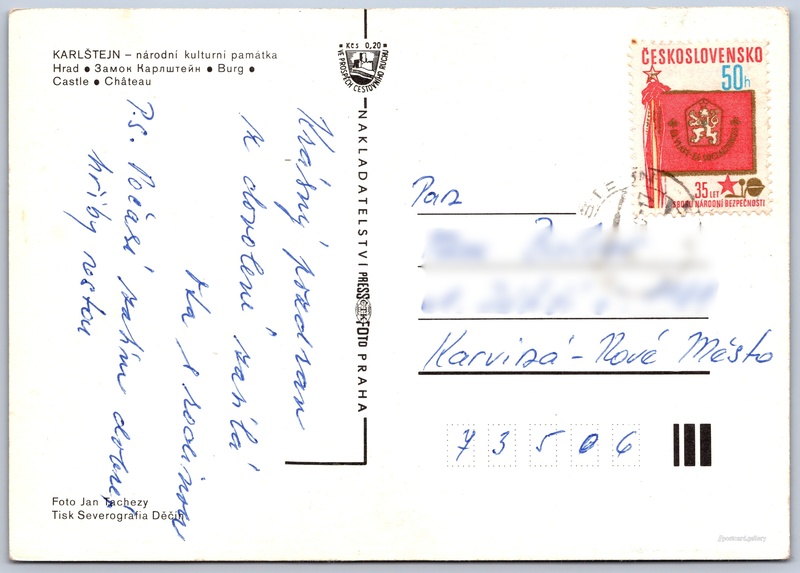 KARLŠTEJN – národní kulturní památka
Hrad ● Замок Карлштейн ● Burg ●
Castle ● Château
Krásný pozdrav
z dovolené zasílá
s rodinou
P.S. Počasí zatím dobré,
hřiby rostou
Foto Jan Tachezy
Tisk Severografia Děčín
Kčs 0,20
VE PROSPĚCH CESTOVNÍHO RUCHU
NAKLADATELSTVÍ PRESSFOTO PRAHA
ČTK
ČESKOSLOVENSKO
50h
35 LET
SBORU NÁRODNÍ BEZPEČNOSTI
Pan
Karviná - Nové Město
73506
//postcard.gallery